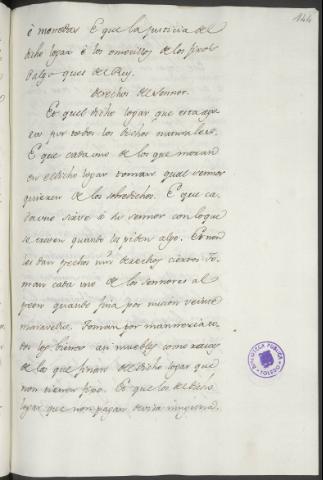 144
é monedas E que la justicia del
dicho logar é los omecillos de los fijos
dalgo ques del Rey.
derechos del Sennor.
Et quel dicho logar que esta aya
en por todos los dichos naturales.
E que cada uno de los que moran
en el dicho logar toman qual sennor
quieren de los sobredichos. E que ca
da uno sirve á su sennor con lo que
se avienen quando les piden algo. Et non
les dan pechos nin derechos ciertos To
man cada uno de los sennores al
peon quando fina por nucion veinte
maravedis. Toman por manneria to
dos los bienes asi muebles como raices
de los que finan del dicho logar que
non tienen fijo. Et que los del dicho
logar que non pagan devisa ninguna.
BIBLIOTECA PUBLICA
TOLEDO